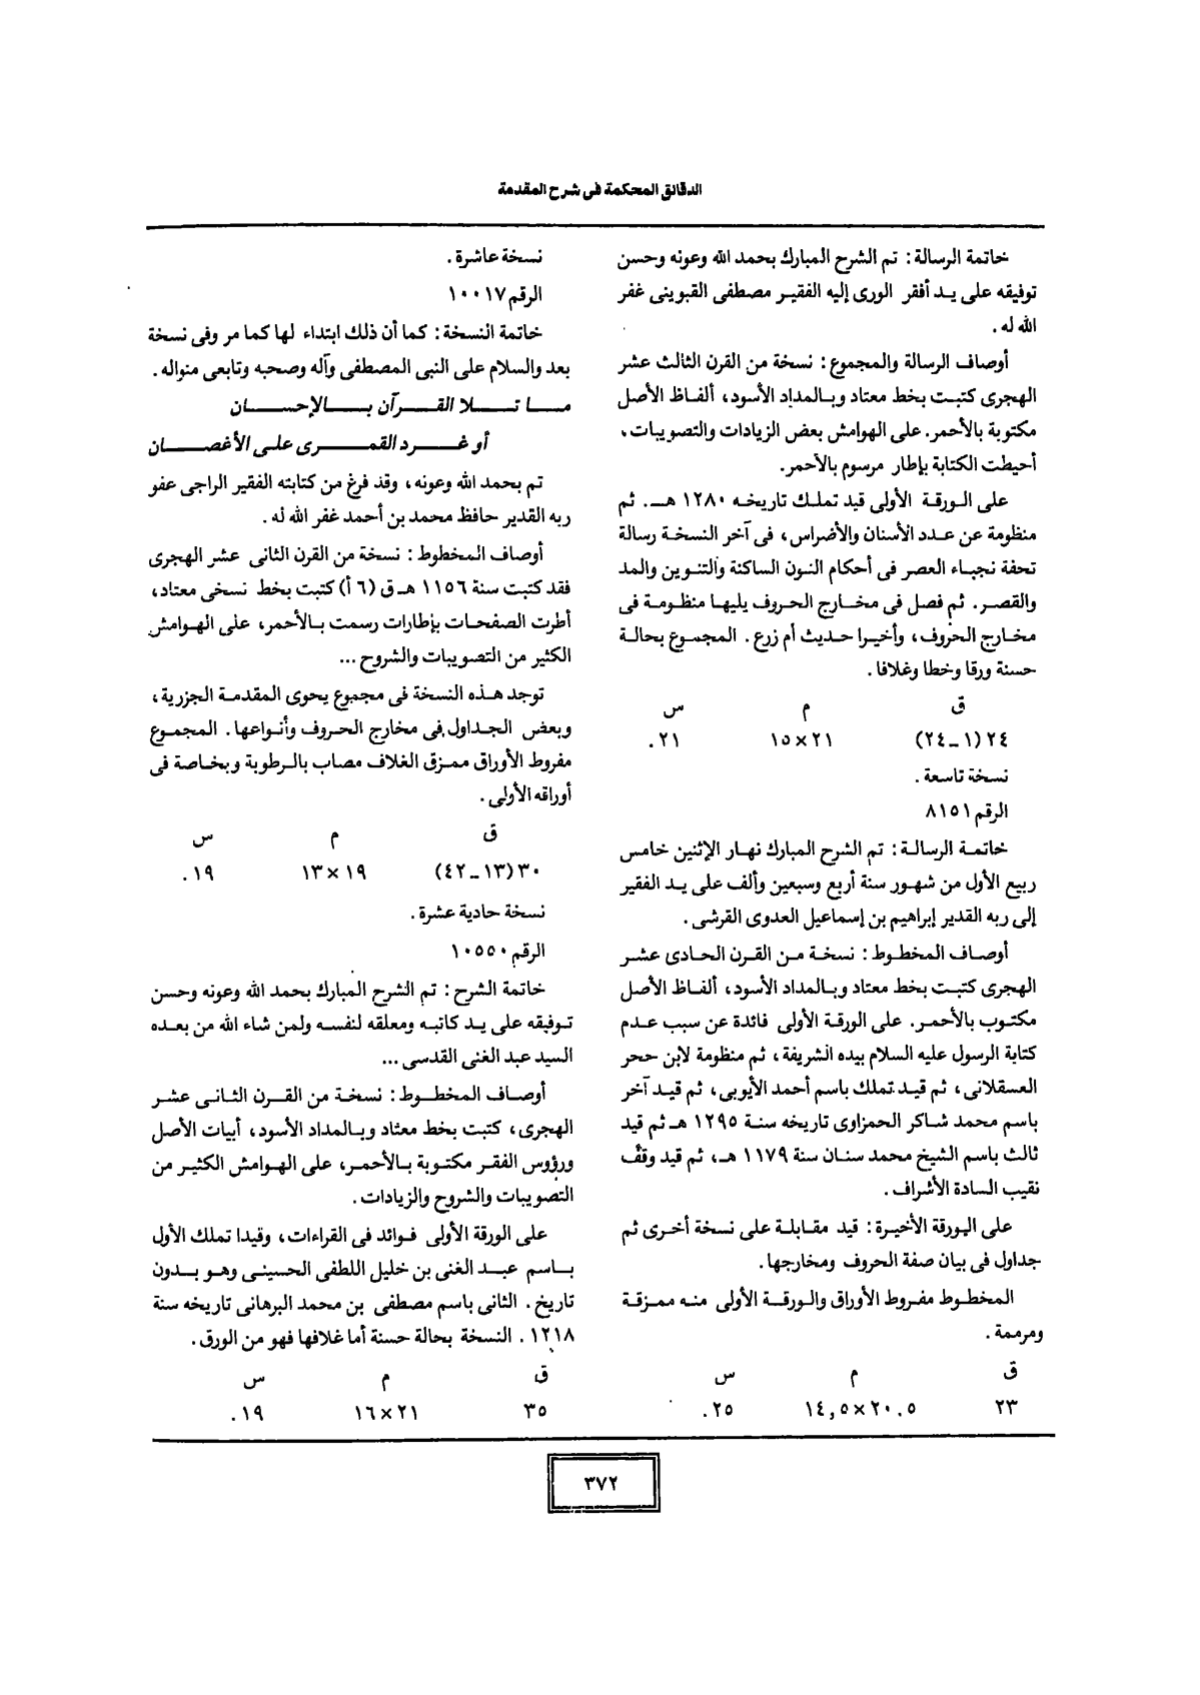 الدقائق المحكمة فى شرح المقدمة
خاتمة الرسالة : تم الشرح المبارك بحمد الله وعونه وحسن
توفيقه على يد أفقر الورى إليه الفقير مصطفى القبوينى غفر
الله له .
أوصاف الرسالة والمجموع : نسخة من القرن الثالث عشر
الهجرى كتبت بخط معتاد وبالمداد الأسود، ألفاظ الأصل
مكتوبة بالأحمر. على الهوامش بعض الزيادات والتصويبات،
أحيطت الكتابة بإطار مرسوم بالأحمر.
على الورقة الأولى قيد تملك تاريخه ١٢٨٠ هـ. ثم
منظومة عن عدد الأسنان والأضراس، فى آخر النسخة رسالة
تحفة نجباء العصر فى أحكام النون الساكنة والتنوين والمد
والقصر. ثم فصل فى مخارج الحروف يليها منظومة فى
مخارج الحروف، وأخيرا حديث أم زرع . المجموع بحالة
حسنة ورقا وخطا وغلافا .
ق م س
٢٤ (١ ــ ٢٤) ٢١×١٥ ٢١.
نسخة تاسعة .
الرقم ٨١٥١
خاتمة الرسالة : تم الشرح المبارك نهار الإثنين خامس
ربيع الأول من شهور سنة أربع وسبعين وألف على يد الفقير
إلى ربه القدير إبراهيم بن إسماعيل العدوى القرشى .
أوصاف المخطوط : نسخة من القرن الحادى عشر
الهجرى كتبت بخط معتاد وبالمداد الأسود، ألفاظ الأصل
مكتوب بالأحمر. على الورقة الأولى فائدة عن سبب عدم
كتابة الرسول عليه السلام بيده الشريفة ، ثم منظومة لابن حجر
العسقلانى ، ثم قيد تملك باسم أحمد الأيوبى ، ثم قيد آخر
باسم محمد شاكر الحمزاوى تاريخه سنة ١٢٩٥ هـ ثم قيد
ثالث باسم الشيخ محمد سنان سنة ١١٧٩ هـ، ثم قيد وقف
نقيب السادة الأشراف .
على الورقة الأخيرة : قيد مقابلة على نسخة أخرى ثم
جداول فى بيان صفة الحروف ومخارجها .
المخطوط مفروط الأوراق والورقة الأولى منه ممزقة
ومرممة .
ق م س
٢٣ ٢٠.٥×١٤,٥ ٢٥.
نسخة عاشرة .
الرقم ١٠٠١٧
خاتمة النسخة : كما أن ذلك ابتداء لها كما مر وفى نسخة
بعد والسلام على النبى المصطفى وآله وصحبه وتابعى منواله .
مـــا تـــلا القـــرآن بـــالإحســـان
أو غـــرد القمـــرى على الأغصـــان
تم بحمد الله وعونه ، وقد فرغ من كتابته الفقير الراجى عفو
ربه القدير حافظ محمد بن أحمد غفر الله له .
أوصاف المخطوط : نسخة من القرن الثانى عشر الهجرى
فقد كتبت سنة ١١٥٦ هـ ق (٦ أ) كتبت بخط نسخى معتاد،
أطرت الصفحات بإطارات رسمت بالأحمر، على الهوامش
الكثير من التصويبات والشروح ...
توجد هذه النسخة فى مجموع يحوى المقدمة الجزرية ،
وبعض الجداول فى مخارج الحروف وأنواعها . المجموع
مفروط الأوراق ممزق الغلاف مصاب بالرطوبة وبخاصة فى
أوراقه الأولى .
ق م س
٣٠ (١٣ ــ ٤٢) ١٩×١٣ ١٩.
نسخة حادية عشرة .
الرقم ١٠٥٥٠
خاتمة الشرح : تم الشرح المبارك بحمد الله وعونه وحسن
توفيقه على يد كاتبه ومعلقه لنفسه ولمن شاء الله من بعده
السيد عبد الغنى القدسى ...
أوصاف المخطوط : نسخة من القرن الثانى عشر
الهجرى ، كتبت بخط معتاد وبالمداد الأسود، أبيات الأصل
ورؤوس الفقر مكتوبة بالأحمر، على الهوامش الكثير من
التصويبات والشروح والزيادات .
على الورقة الأولى فوائد فى القراءات ، وقيدا تملك الأول
باسم عبد الغنى بن خليل اللطفى الحسينى وهو بدون
تاريخ . الثانى باسم مصطفى بن محمد البرهانى تاريخه سنة
١٢١٨ . النسخة بحالة حسنة أما غلافها فهو من الورق .
ق م س
٣٥ ٢١×١٦ ١٩.
٣٧٢